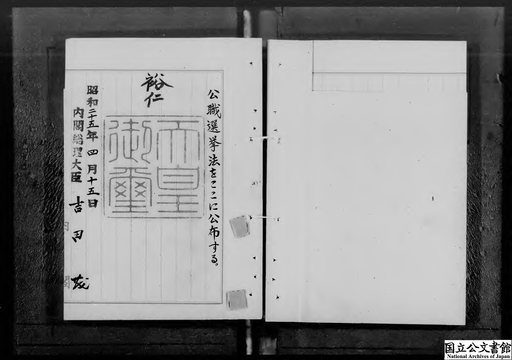 公職選挙法をここに公布する。
裕仁
天皇御璽
昭和二十五年四月十五日
内閣総理大臣 吉田茂
国立公文書館
National Archives of Japan